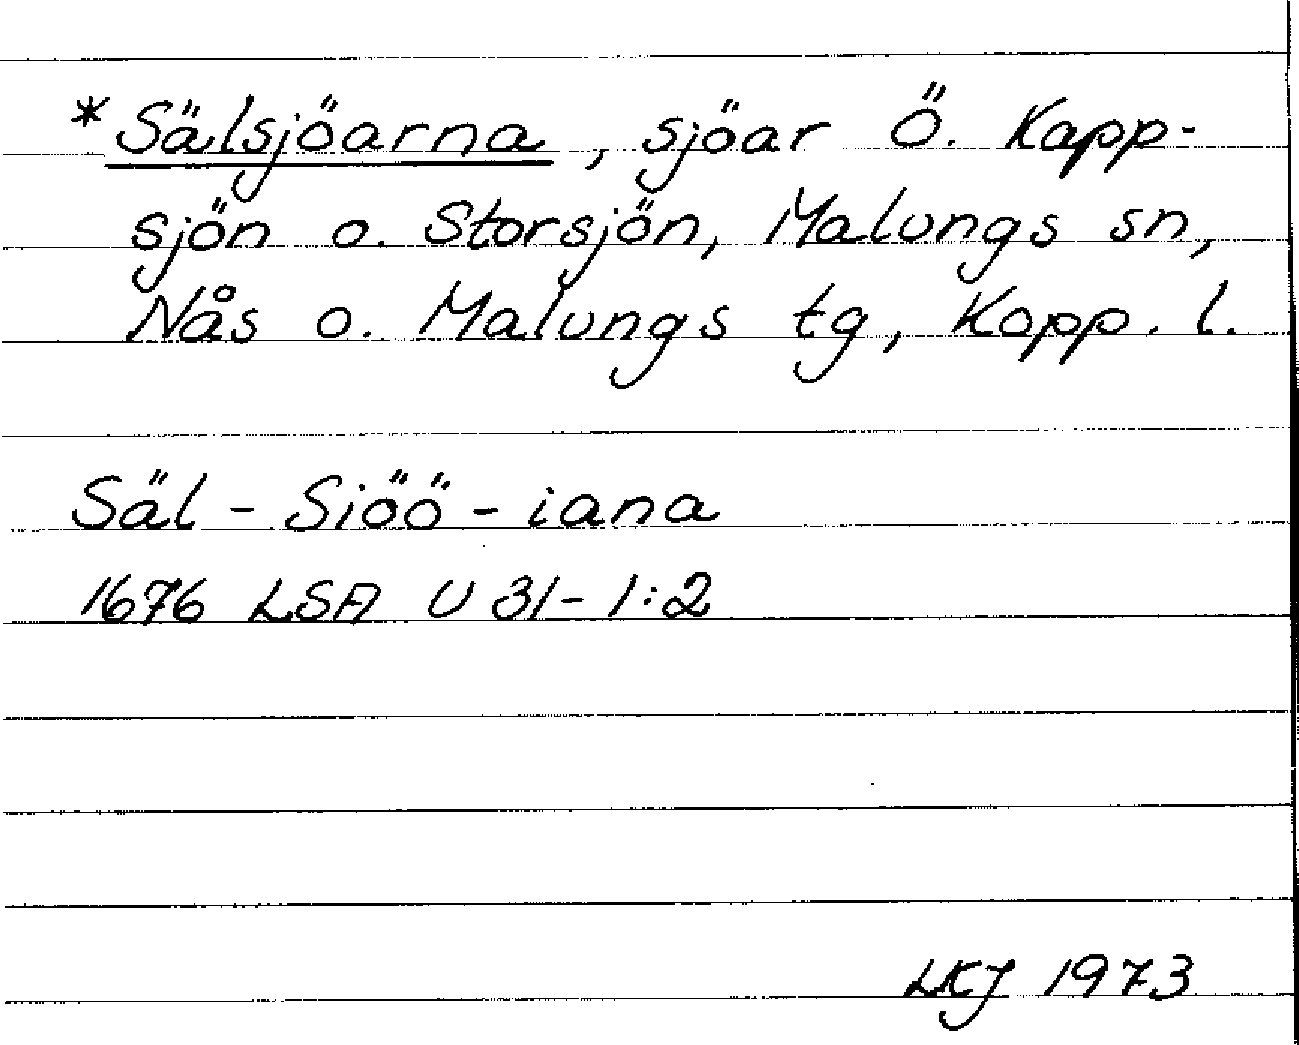 *Sälsjöarna, sjöar Ö. Kapp-
sjön o. Storsjön, Malungs sn,
Nås o. Malungs tg, Kopp. l.
Säl - Siöö - iana
1676 LSA U 31-1:2
LKJ 1973